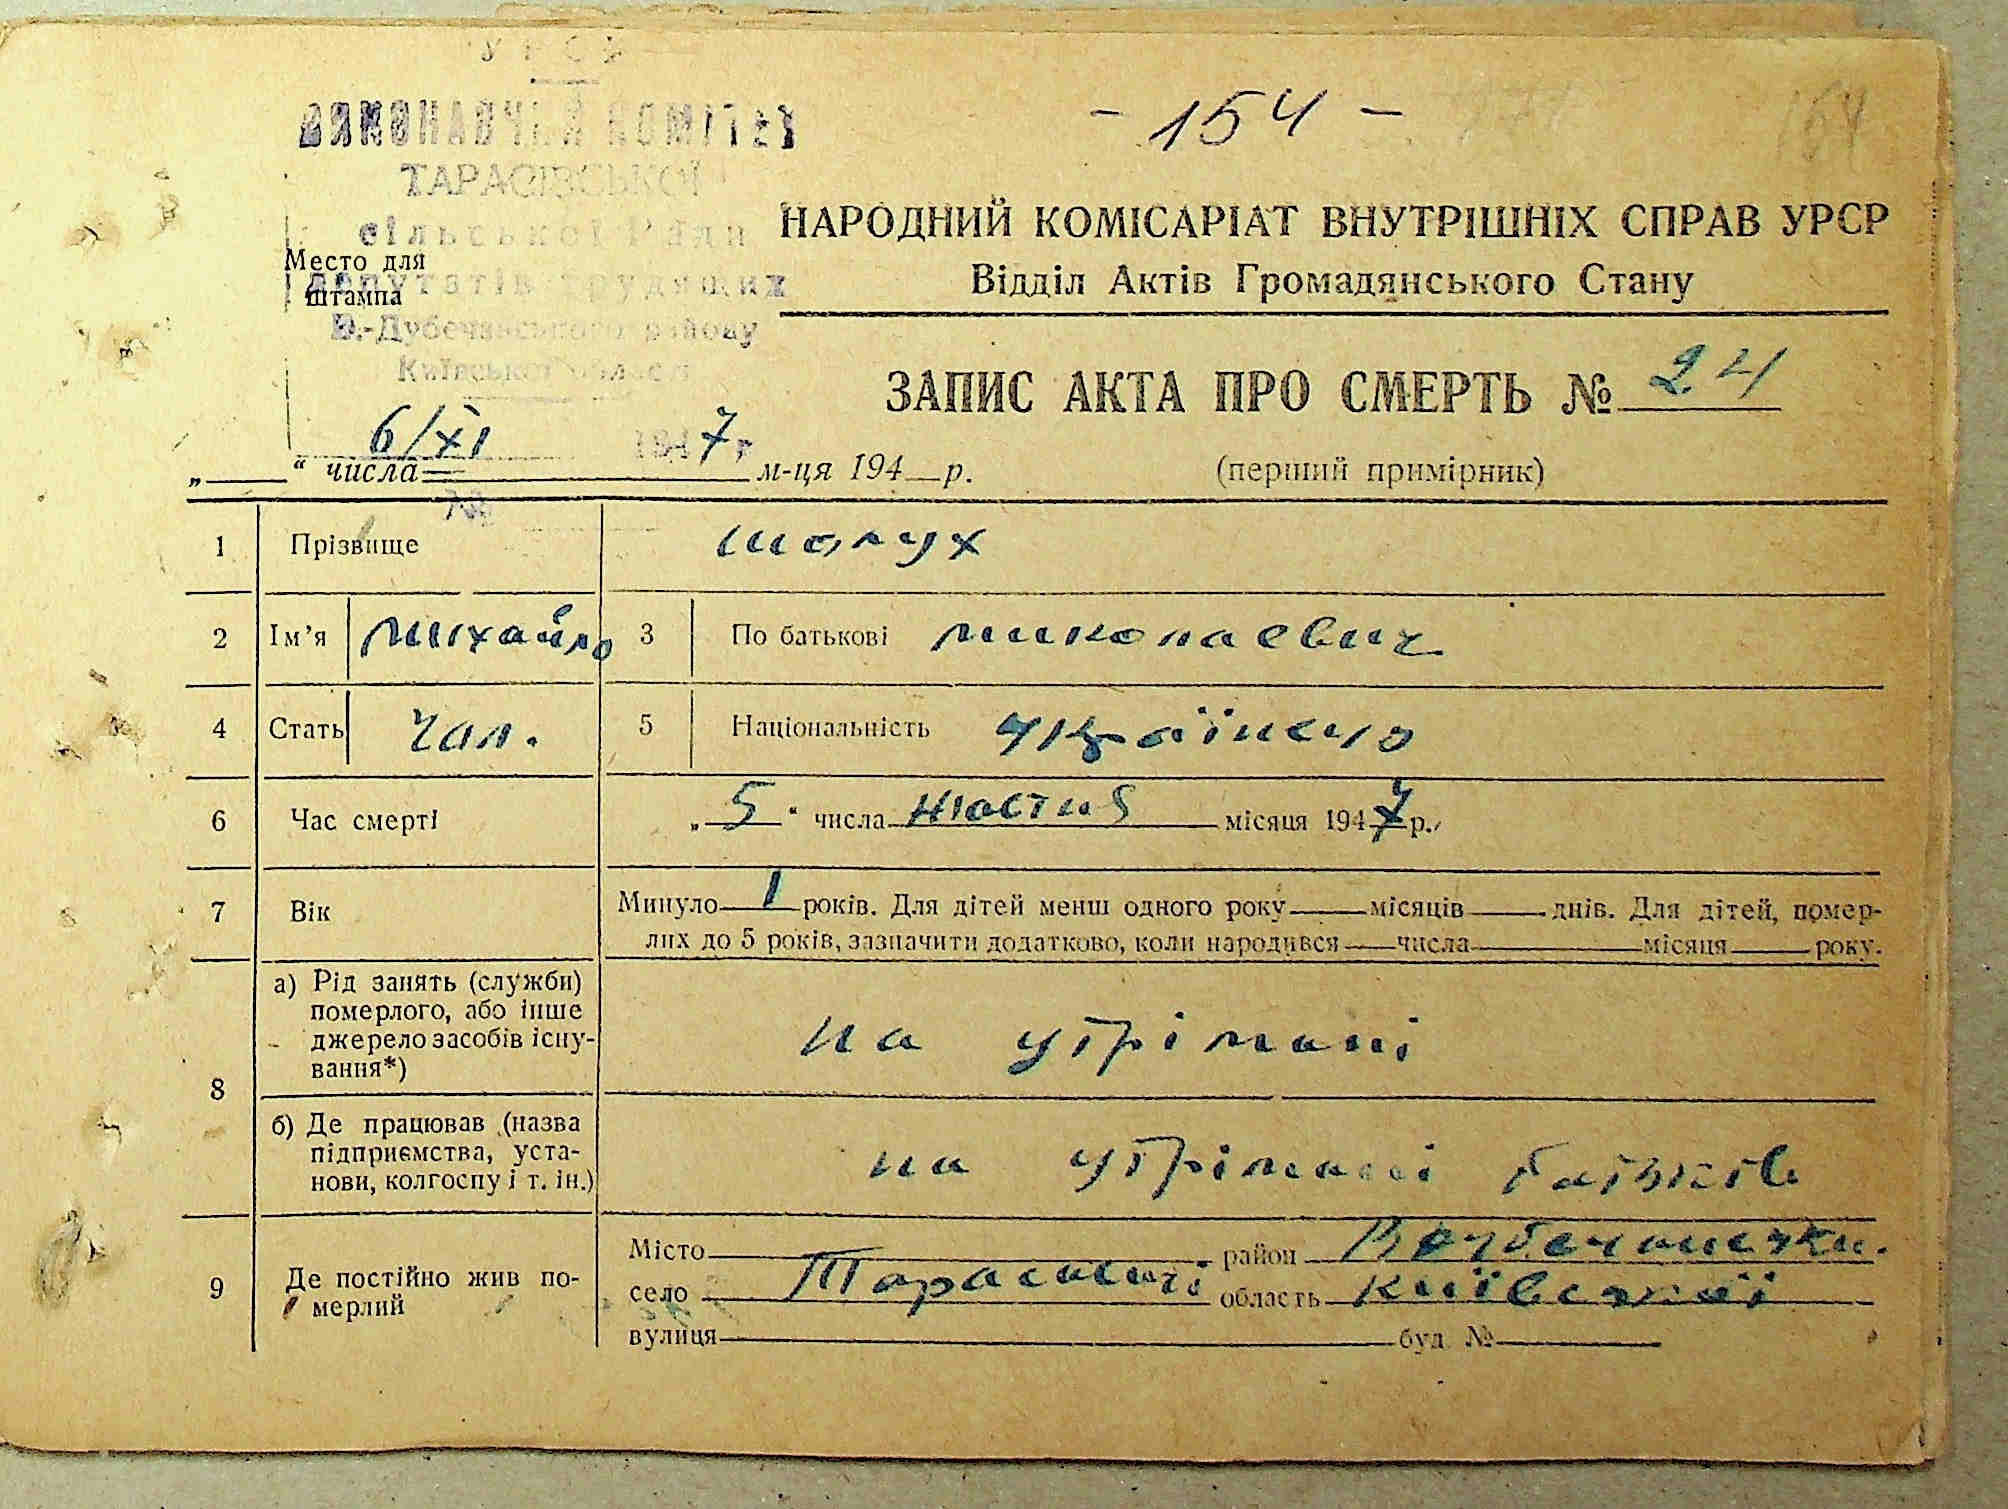 УРСР
ВИКОНАВЧИЙ КОМІТЕТ
ТАРАСІВСЬКОЇ
сільської Ради
депутатів трудящих
В.-Дубечанського району
Київської області
6/XI 1947 р
№
- 154 -
154
Место для
штампа
НАРОДНИЙ КОМІСАРІАТ ВНУТРІШНІХ СПРАВ УРСР
Відділ Актів Громадянського Стану
ЗАПИС АКТА ПРО СМЕРТЬ № 24
„ “ числа м-ця 194 р.
(перший примірник)
1 Прізвище Шолух
2 Ім’я Михайло 3 По батькові Миколаевич
4 Стать Чол. 5 Національність Україньць
6 Час смерті „ 5 “ числа місяця 1947 р.
7 Вік Минуло 1 років. Для дітей менш одного року місяців днів. Для дітей, помер-
лих до 5 років, зазначити додатково, коли народився числа місяця року.
8 а) Рід занять (служби)
померлого, або інше
джерело засобів існу-
вання*)
на утрімані
б) Де працював (назва
підприємства, уста-
нови, колгоспу і т. ін.)
на утрімані батьків
9 Де постійно жив по-
мерлий
Місто район
село Тарасовичі область Київської
вулиця буд №